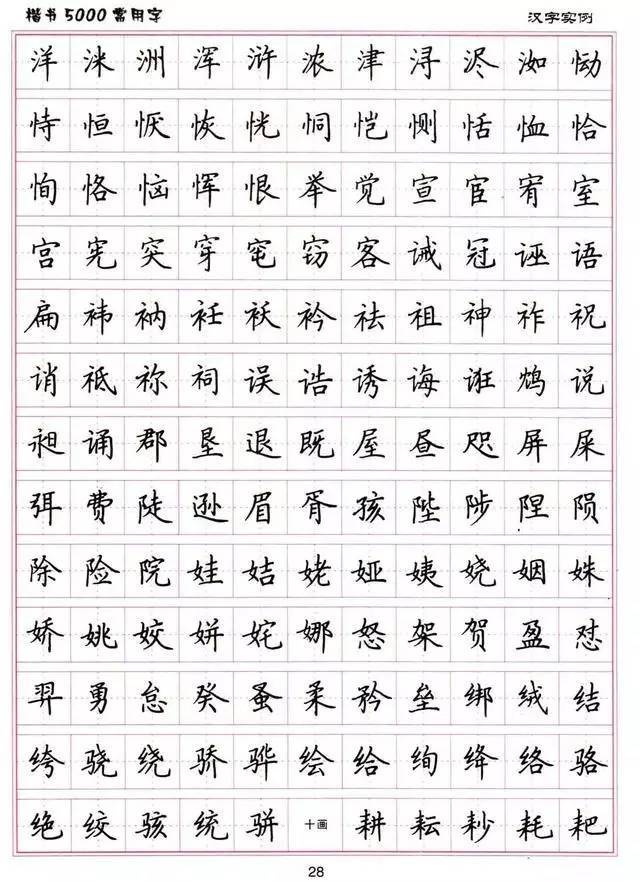 楷书5000常用字 汉字实例
洋 洣 洲 浑 浒 浓 津 浔 浕 洳 恸
恃 恒 恹 恢 恍 恫 恺 恻 恬 恤 恰
恂 恪 恼 恽 恨 举 觉 宣 宦 宥 室
宫 宪 突 穿 窀 窃 客 诫 冠 诬 语
扁 袆 衲 衽 袄 衿 祛 祖 神 祚 祝
诮 祗 祢 祠 误 诰 诱 诲 诳 鸩 说
昶 诵 郡 垦 退 既 屋 昼 咫 屏 屎
弭 费 陡 逊 眉 胥 孩 陛 陟 陧 陨
除 险 院 娃 姞 姥 娅 姨 娆 姻 姝
娇 姚 姣 姘 姹 娜 怒 架 贺 盈 怼
羿 勇 怠 癸 蚤 柔 矜 垒 绑 绒 结
绔 骁 绕 骄 骅 绘 给 绚 绛 络 骆
绝 绞 骇 统 骈 十画 耕 耘 耖 耗 耙
28